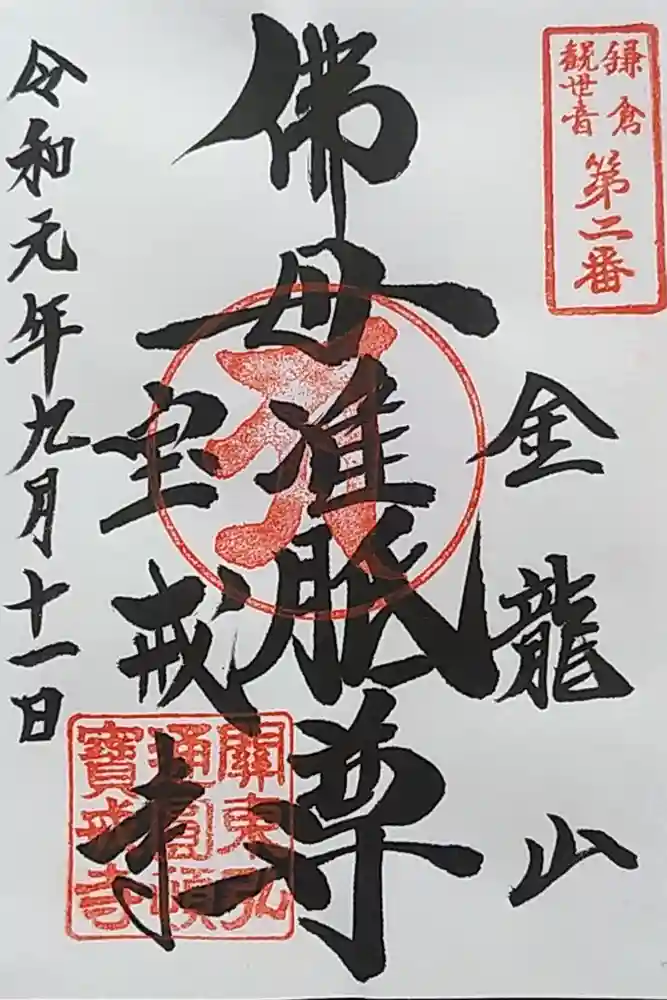 鎌倉
観世音
第二番
金龍山
佛母准胝尊
宝戒寺
關東弘
通圓頓
寶戒寺
令和元年九月十一日